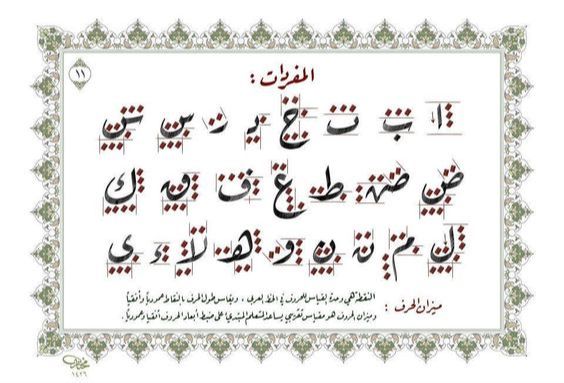 ١١
المفردات :
ا ب ت ح د ر س س
ص ص ط ع ف ق ك
ل م ن ن و ه لا ء ى
النقطة هي وحدة لقياس الحروف في الخط العربي ، وتقاس طول الحرف بالنقاط عمودياً وأفقياً
ميزان الحرف :
وميزان الحروف هو مقياس تقريبي يساعد المتعلم المبتدئ على ضبط أبعاد الحروف أفقياً وعمودياً .
١٤٢٦